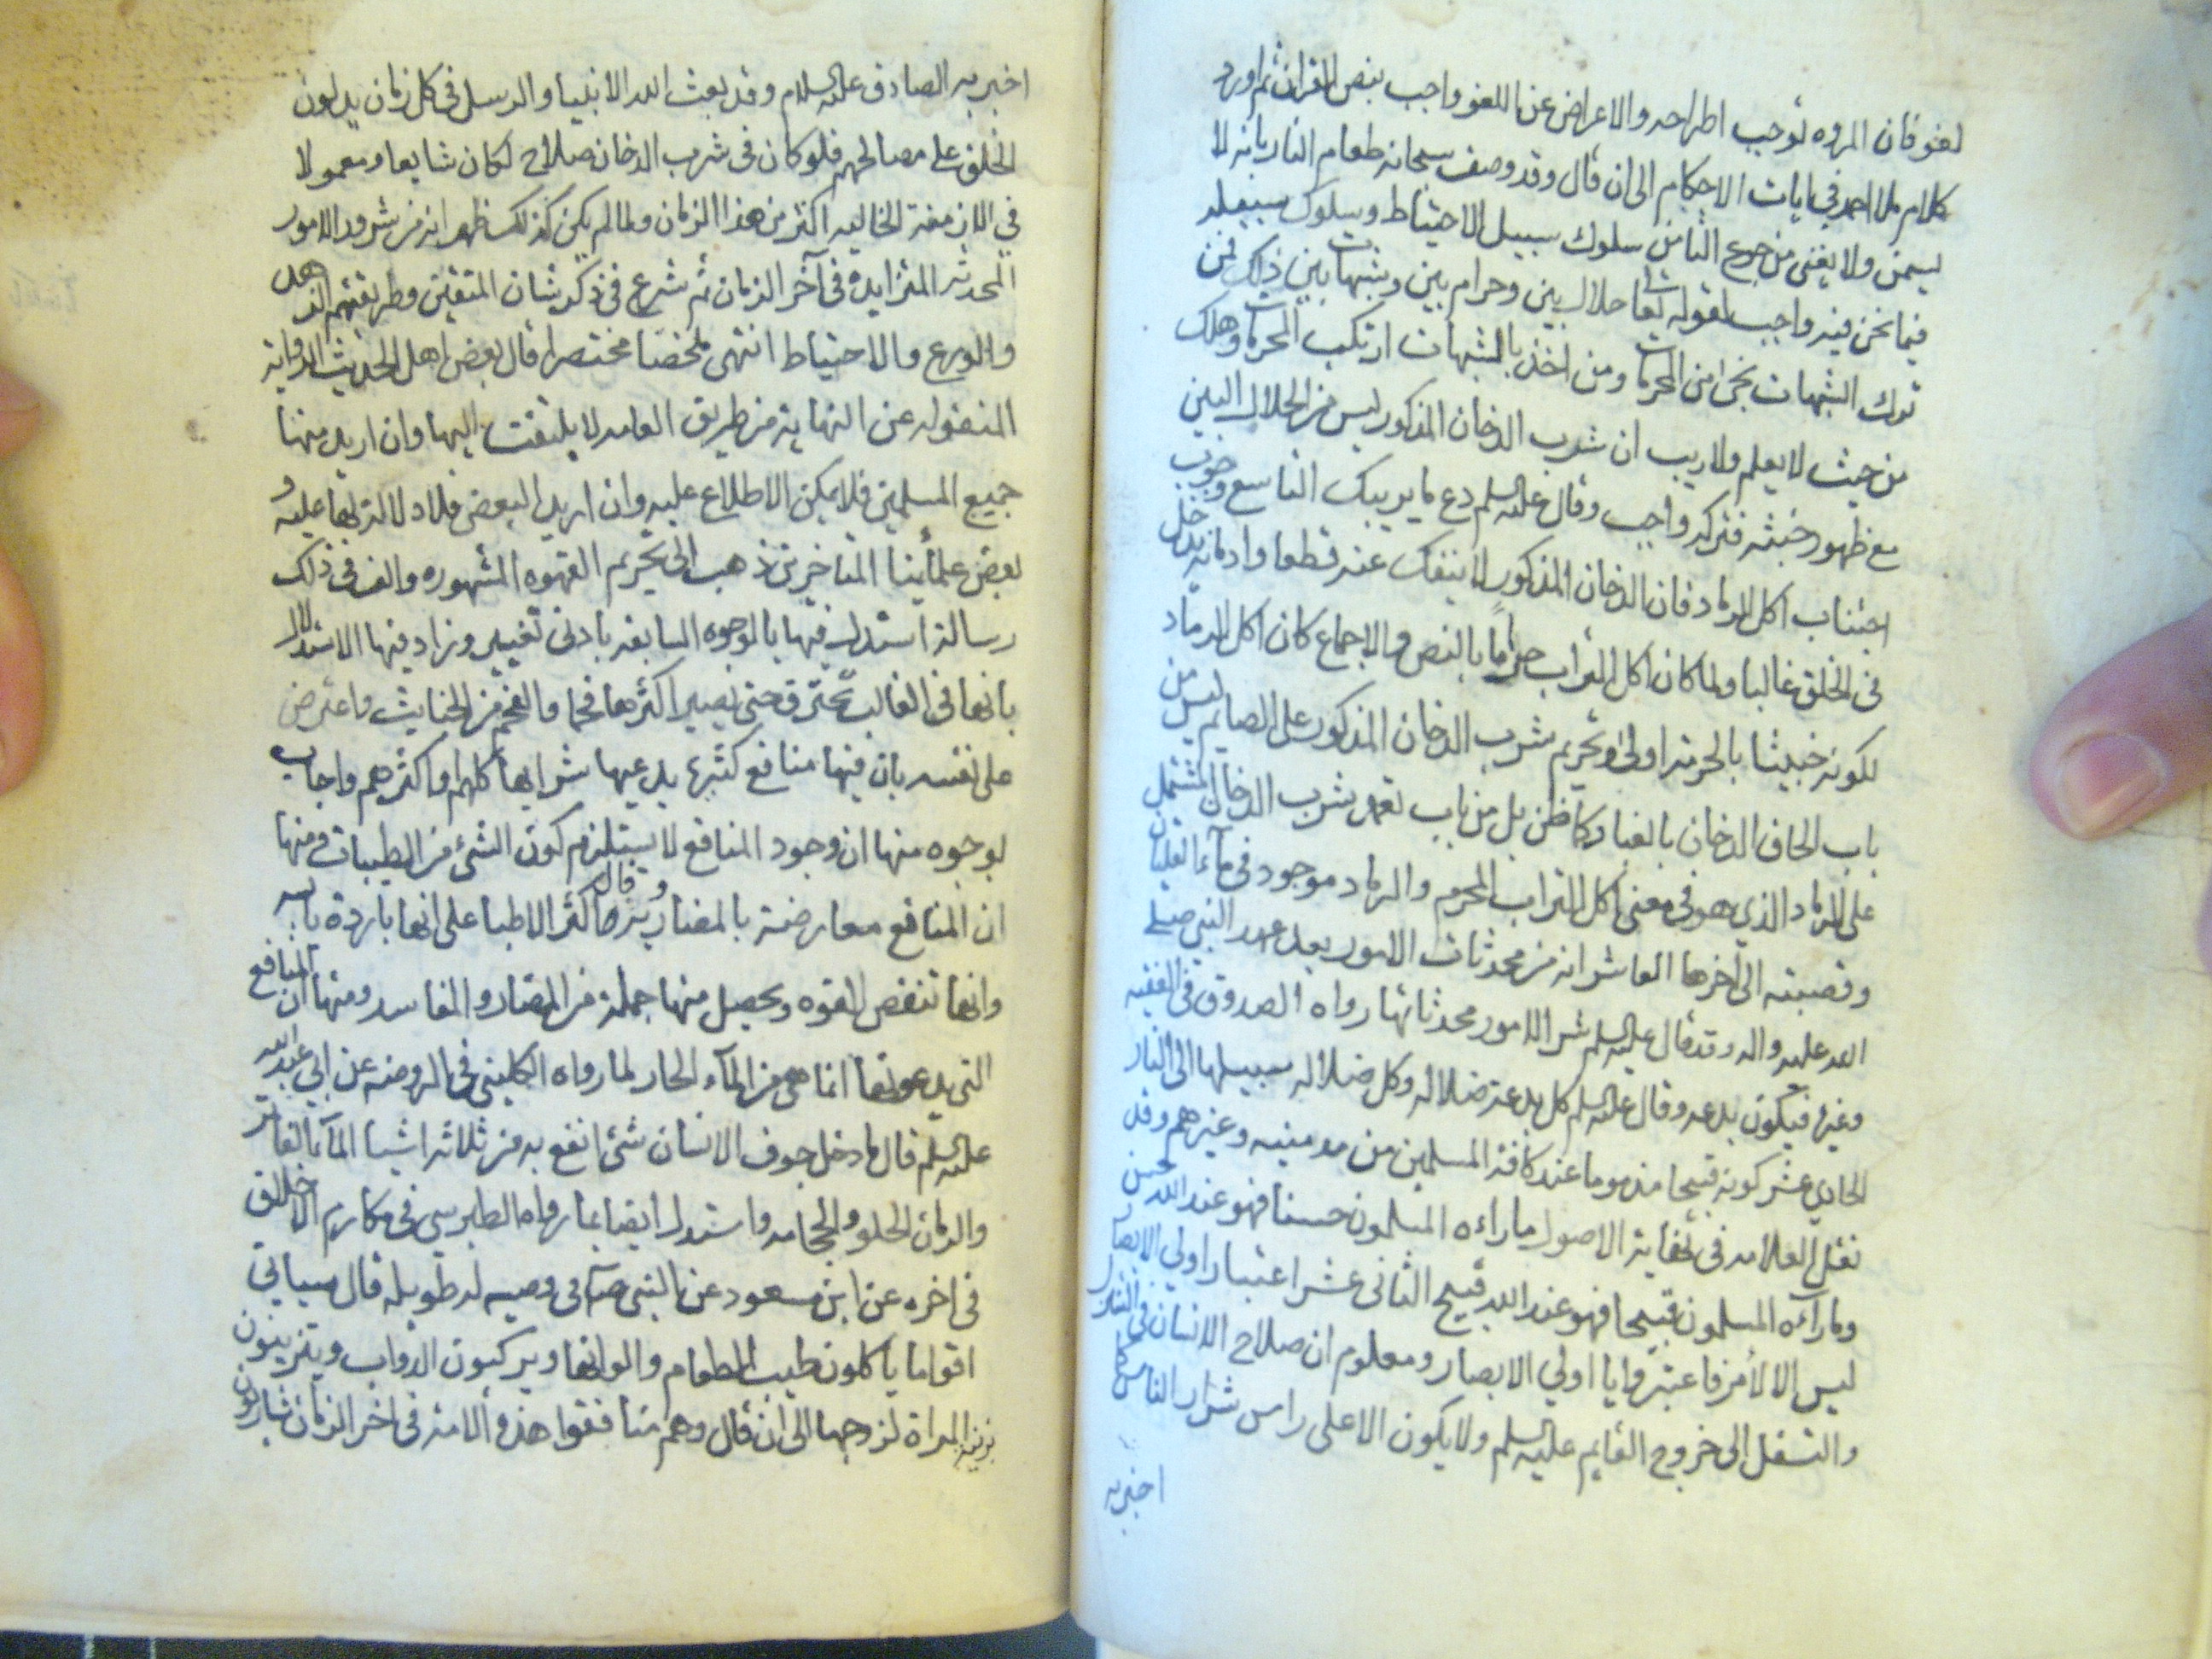 لغو فان المروه توجب اطراحه والاعراض عن اللغو واجب بنص القران ثم اورد
كلام ملا احمد في ايات الاحكام الى ان قال وقد وصف سبحانه طعام النار بانه لا
يسمن ولا يغنى من جوع الثامن سلوك سبيل الاحتياط وسلوك سبيله
فيما نحن فيه واجب لقوله حلال بين وحرام بين وشبهات بين ذلك فمن
ترك الشبهات نجى من المحرمات ومن اخذ بالشبهات ارتكب المحرمات وهلك
من حيث لا يعلم ولا ريب ان شرب الدخان المذكور ليس من الحلال البين
مع ظهور خبثه فتركه واجب وقال عليه السلم دع ما يريبك التاسع وجوب
اجتناب اكل الرماد فان الدخان المذكور لا ينفك عنه قطعا وادمانه يدخل
في الحلق غالبا ولما كان اكل التراب حراما بالنص والاجماع كان اكل الرماد
لكونه خبيثا بالحرمة اولى وتحريم شرب الدخان المذكور على الصايم ليس من
باب الحاق الدخان بالغبار كما ظن بل من باب تعمد شرب الدخان المشتمل
على الرماد الذي هو في معنى اكل التراب المحرم والرماد موجود في ماء الغليان
وقصبته الى اخرها العاشر انه من محدثات الامور بعد عهد النبي صلى
الله عليه واله وقد قال عليه السلم شر الامور محدثاتها رواه الصدوق في الفقيه
وغيره فيكون بدعه وقال عليه السلم كل بدعة ضلاله وكل ضلاله سبيلها الى النار
الحادي عشر كونه قبيحا مذموما عند كافة المسلمين من مدمنيه وغيرهم وقد
نقل العلامه في نهاية الاصول ما راءه المسلمون حسنا فهو عند الله حسن
وما رآءه المسلمون قبيحا فهو عند الله قبيح الثاني عشر اعتبار اولي الابصار
ليس الا لامر فاعتبروا يا اولي الابصار ومعلوم ان صلاح الانسان في
والتسفل الى خروج القايم عليه السلم ولا يكون الا على راس شرار الناس كما
اخبر به
اخبر به الصادق عليه السلام وقد بعث الله الانبيا والرسل في كل زمان يدلون
الخلق على مصالحهم فلو كان في شرب الدخان صلاح لكان شايعا ومعمولا
في الازمنة الخاليه اكثر من هذا الزمان ولما لم يكن كذلك ظهر انه من شرور الامور
المحدثه المتزايده في آخر الزمان ثم شرع في ذكر شان المتقين وطريقتهم الزهد
والورع والاحتياط انتهى ملخصا مختصرا قال بعض اهل الحديث الرواية
المنقوله عن النهاية من طريق العامه لا يلتفت اليها وان اريد منها
جميع المسلمين فلا يمكن الاطلاع عليه وان اريد البعض فلا دلالة لها عليه و
بعض علمائنا المتاخرين ذهب الى تحريم القهوه المشهوره والف في ذلك
رسالة استدل فيها بالوجوه السابقه بادنى تغيير وزاد فيها الاستدلال
بانها في الغالب تحترق حتى يصير اكثرها فحما والفحم من الخبايث واعترض
على نفسه بان فيها منافع كثيرة يدعيها شرابها كلهم او اكثرهم واجاب
بوجوه منها ان وجود المنافع لا يستلزم كون الشئ من الطيبات ومنها
ان المنافع معارضة بالمضار وقال اكثر الاطبا على انها باردة يابسه
وانها تنقص القوه ويحصل منها جملة من المضار والمفاسد ومنها ان المنافع
التي يدعونها انما هي من المآء الحار لما رواه الكليني في الروضه عن ابي عبد الله
عليه السلم قال ما دخل جوف الانسان شئ انفع به من ثلاثه اشيا المآء الفاتر
والرمان الحلو والحجامه واستدل ايضا بما رواه الطبرسي في مكارم الاخلاق
في اخره عن ابن مسعود عن النبي صلى في وصيه له طويله قال سياتي
اقوام ياكلون طيب الطعام والوانها ويركبون الدواب ويتزينون
بزينة المراة لزوجها الى ان قال وهم منافقوا هذه الامه في اخر الزمان شاربون